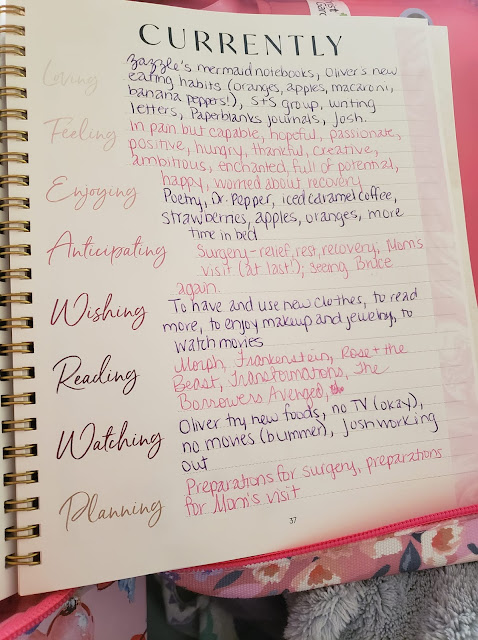 CURRENTLY
Loving
Zazzle's mermaid notebooks, Oliver's new
eating habits (oranges, apples, macaroni,
banana peppers!), S+S group, writing
letters, Paperblanks journals, Josh.
Feeling
In pain but capable, hopeful, passionate,
positive, hungry, thankful, creative,
ambitious, enchanted, full of potential,
happy, worried about recovery
Enjoying
Poetry, Dr. Pepper, iced caramel coffee,
strawberries, apples, oranges, more
time in bed
Anticipating
Surgery-relief, rest, recovery; Mom's
visit (at last!); seeing Bruce
again.
Wishing
To have and use new clothes, to read
more, to enjoy makeup and jewelry, to
watch movies
Reading
Morph, Frankenstein, Rose + the
Beast, Transformations, The
Borrowers Avenged,
Watching
Oliver try new foods, no TV (okay),
no movies (bummer), Josh working
out
Planning
Preparations for surgery, preparations
for Mom's visit
37